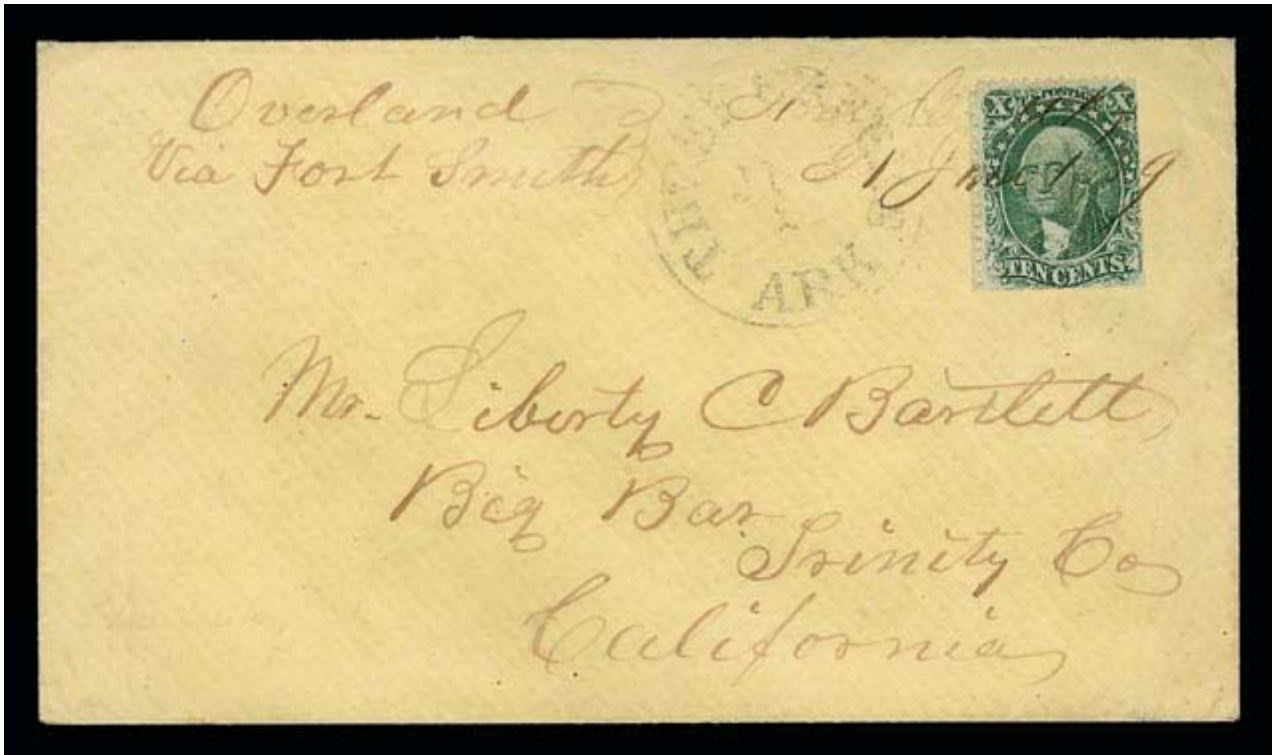 Overland
Via Fort Smith
ARK
X U.S. POSTAGE X
TEN CENTS.
Mr. Liberty C Bartlett
Big Bar
Trinity Co
California